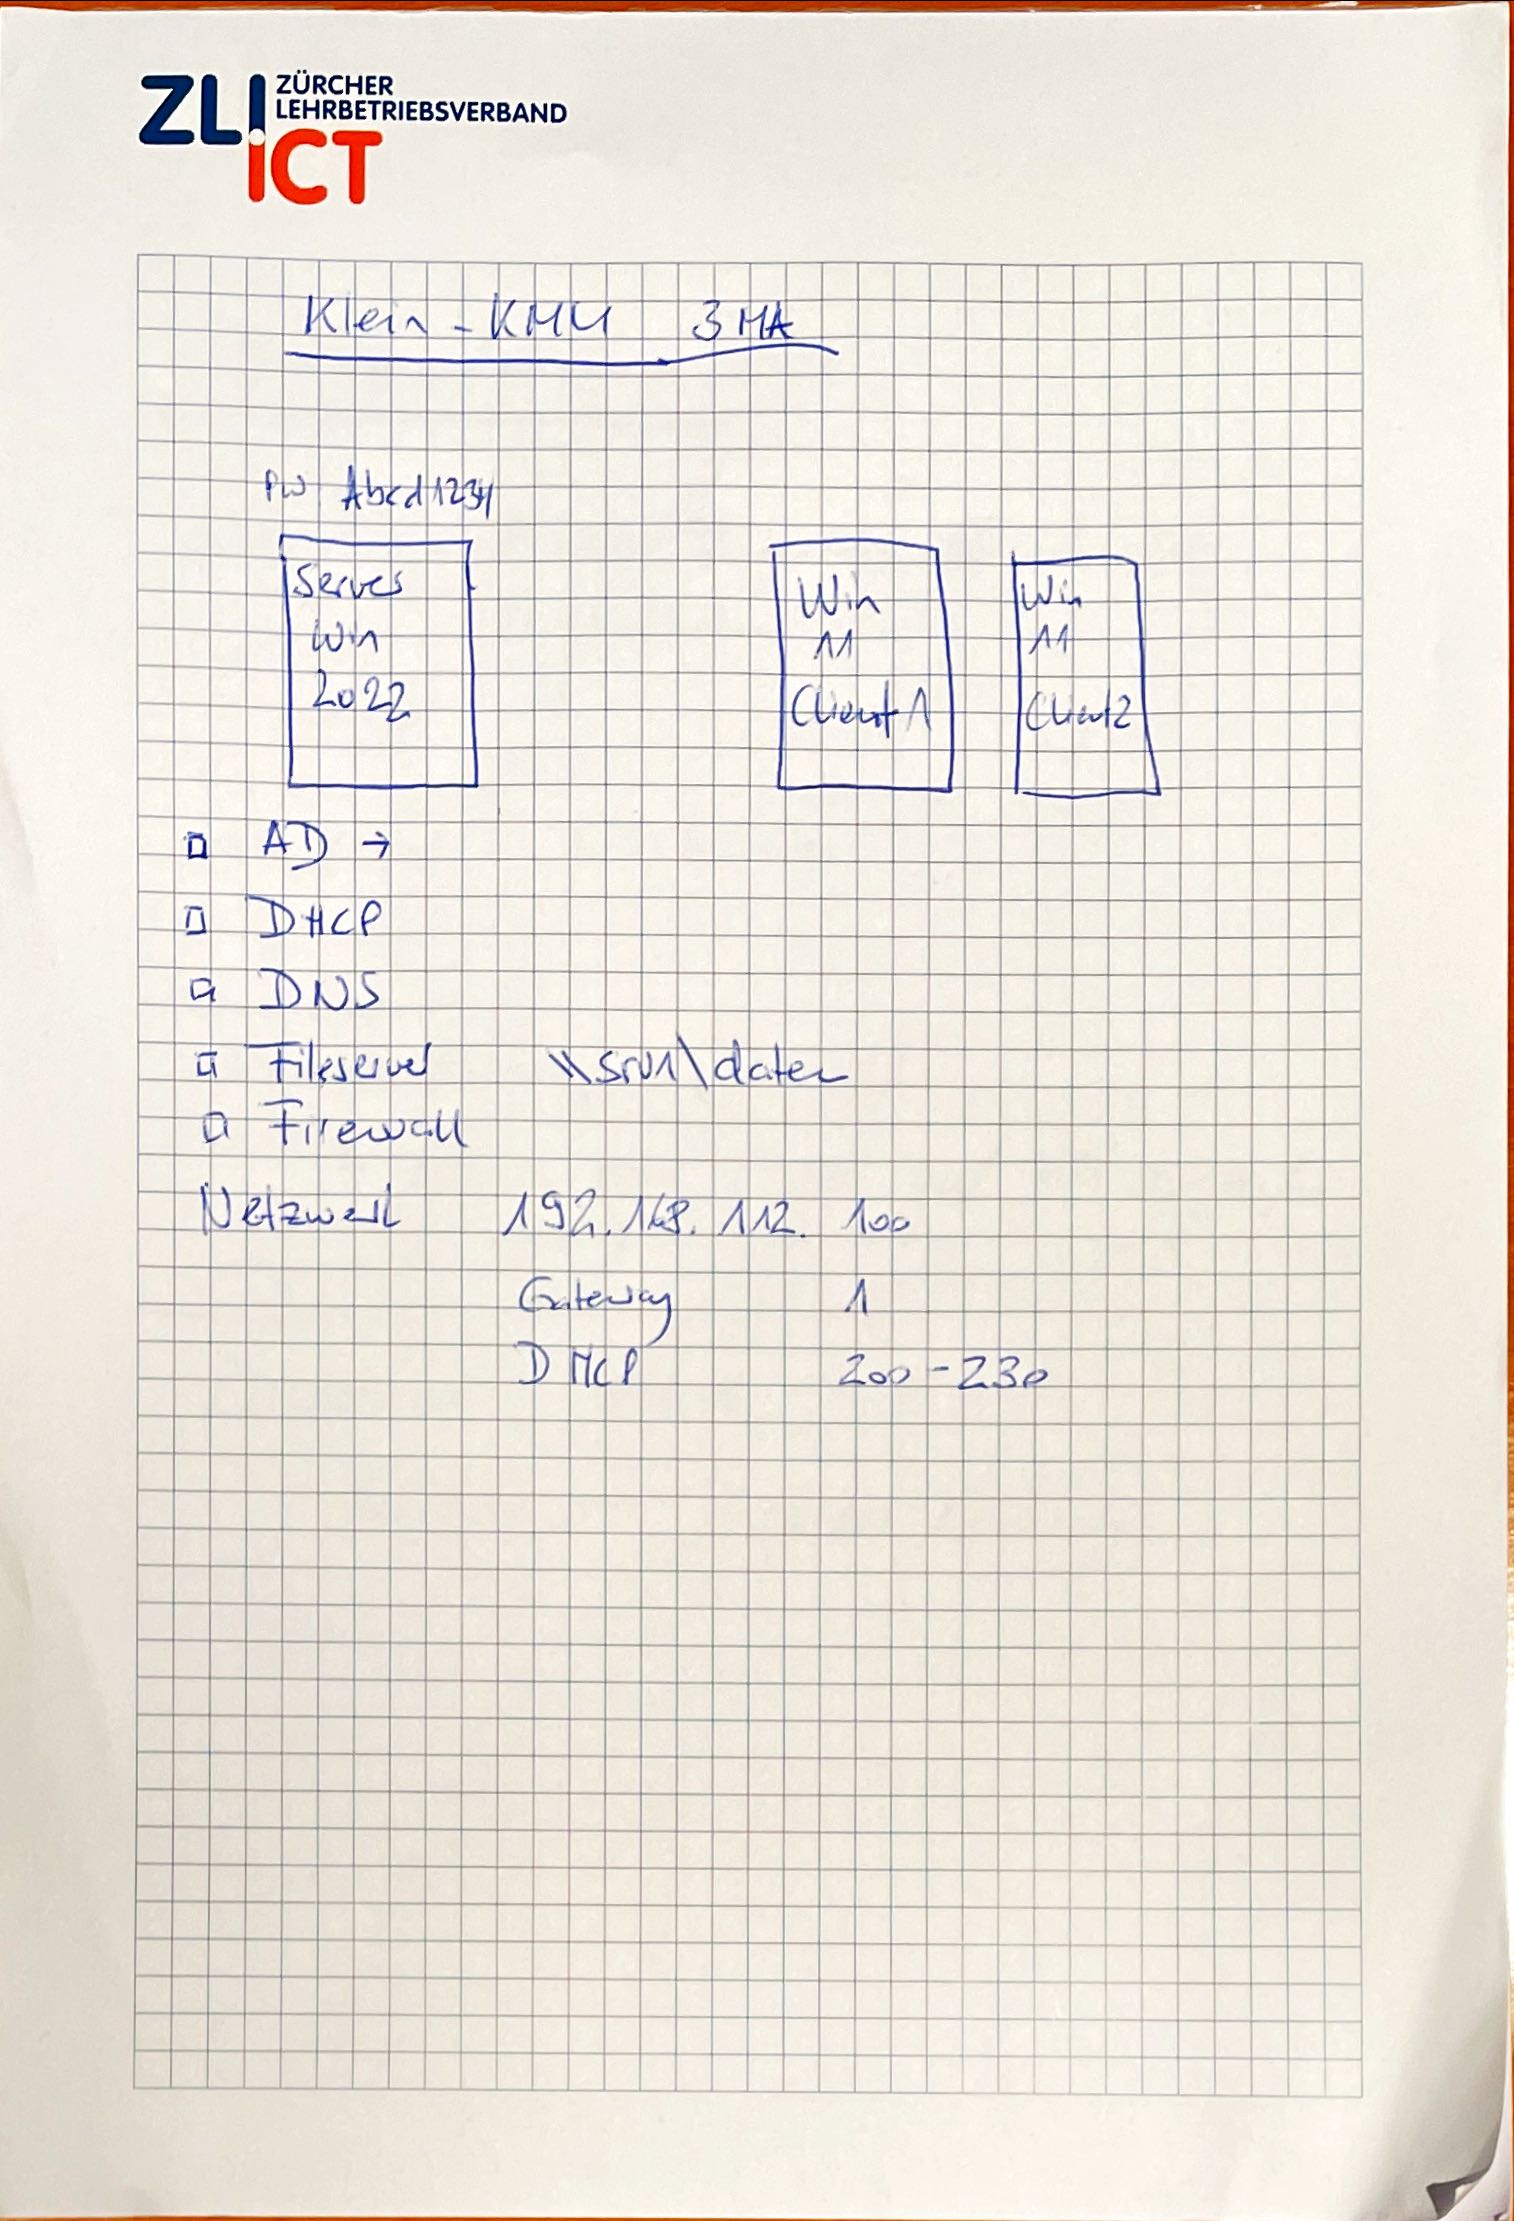 ZLI ZÜRCHER
LEHRBETRIEBSVERBAND
ICT
Klein-KMU 3 MA
PW Abcd1234
Server
Win
2022
Win
11
Client 1
Win
11
Client 2
AD →
DHCP
DNS
Fileserver \\srv1\daten
Firewall
Netzwerk 192.168.112. 100
Gateway 1
DHCP 200-230